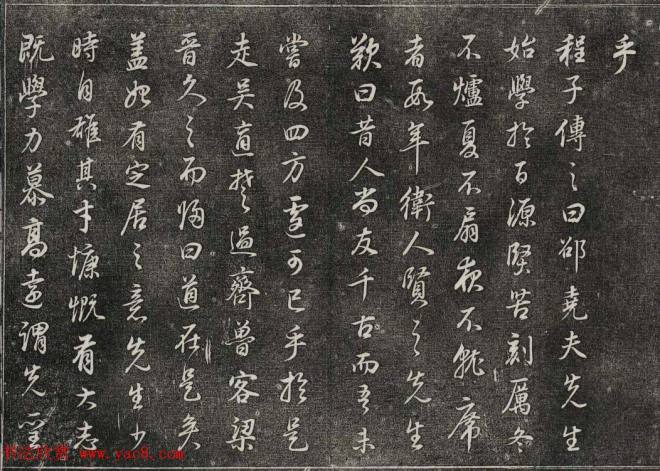 乎
程子傳之曰邵堯夫先生
始學於百源堅苦刻厲冬
不爐夏不扇夜不就席
者數年衛人賢之先生
歎曰昔人尚友千古而吾未
嘗及四方遽可已乎於是
走吳適楚過齊魯客梁
晉久之而歸曰道在是矣
蓋始有定居之意先生少
時自雄其才慷慨有大志
既學力慕高遠謂先王
书法欣赏 www.yac8.com